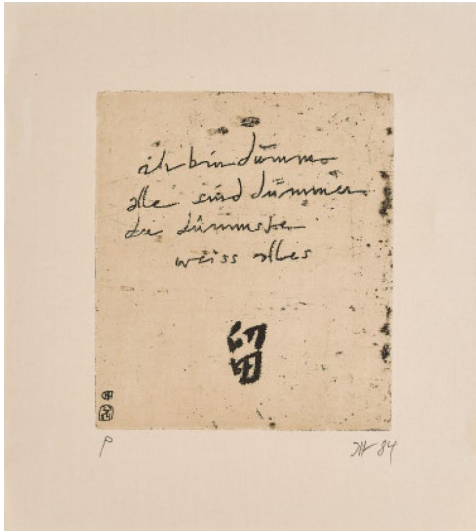 ich bin dumm
alle sind dümmer
der dümmste
weiss alles
留
P
84